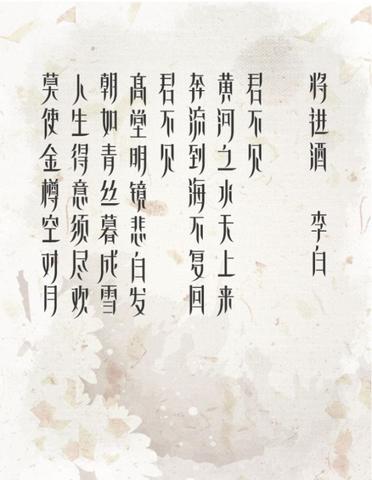 将进酒 李白
君不见
黄河之水天上来
奔流到海不复回
君不见
高堂明镜悲白发
朝如青丝暮成雪
人生得意须尽欢
莫使金樽空对月